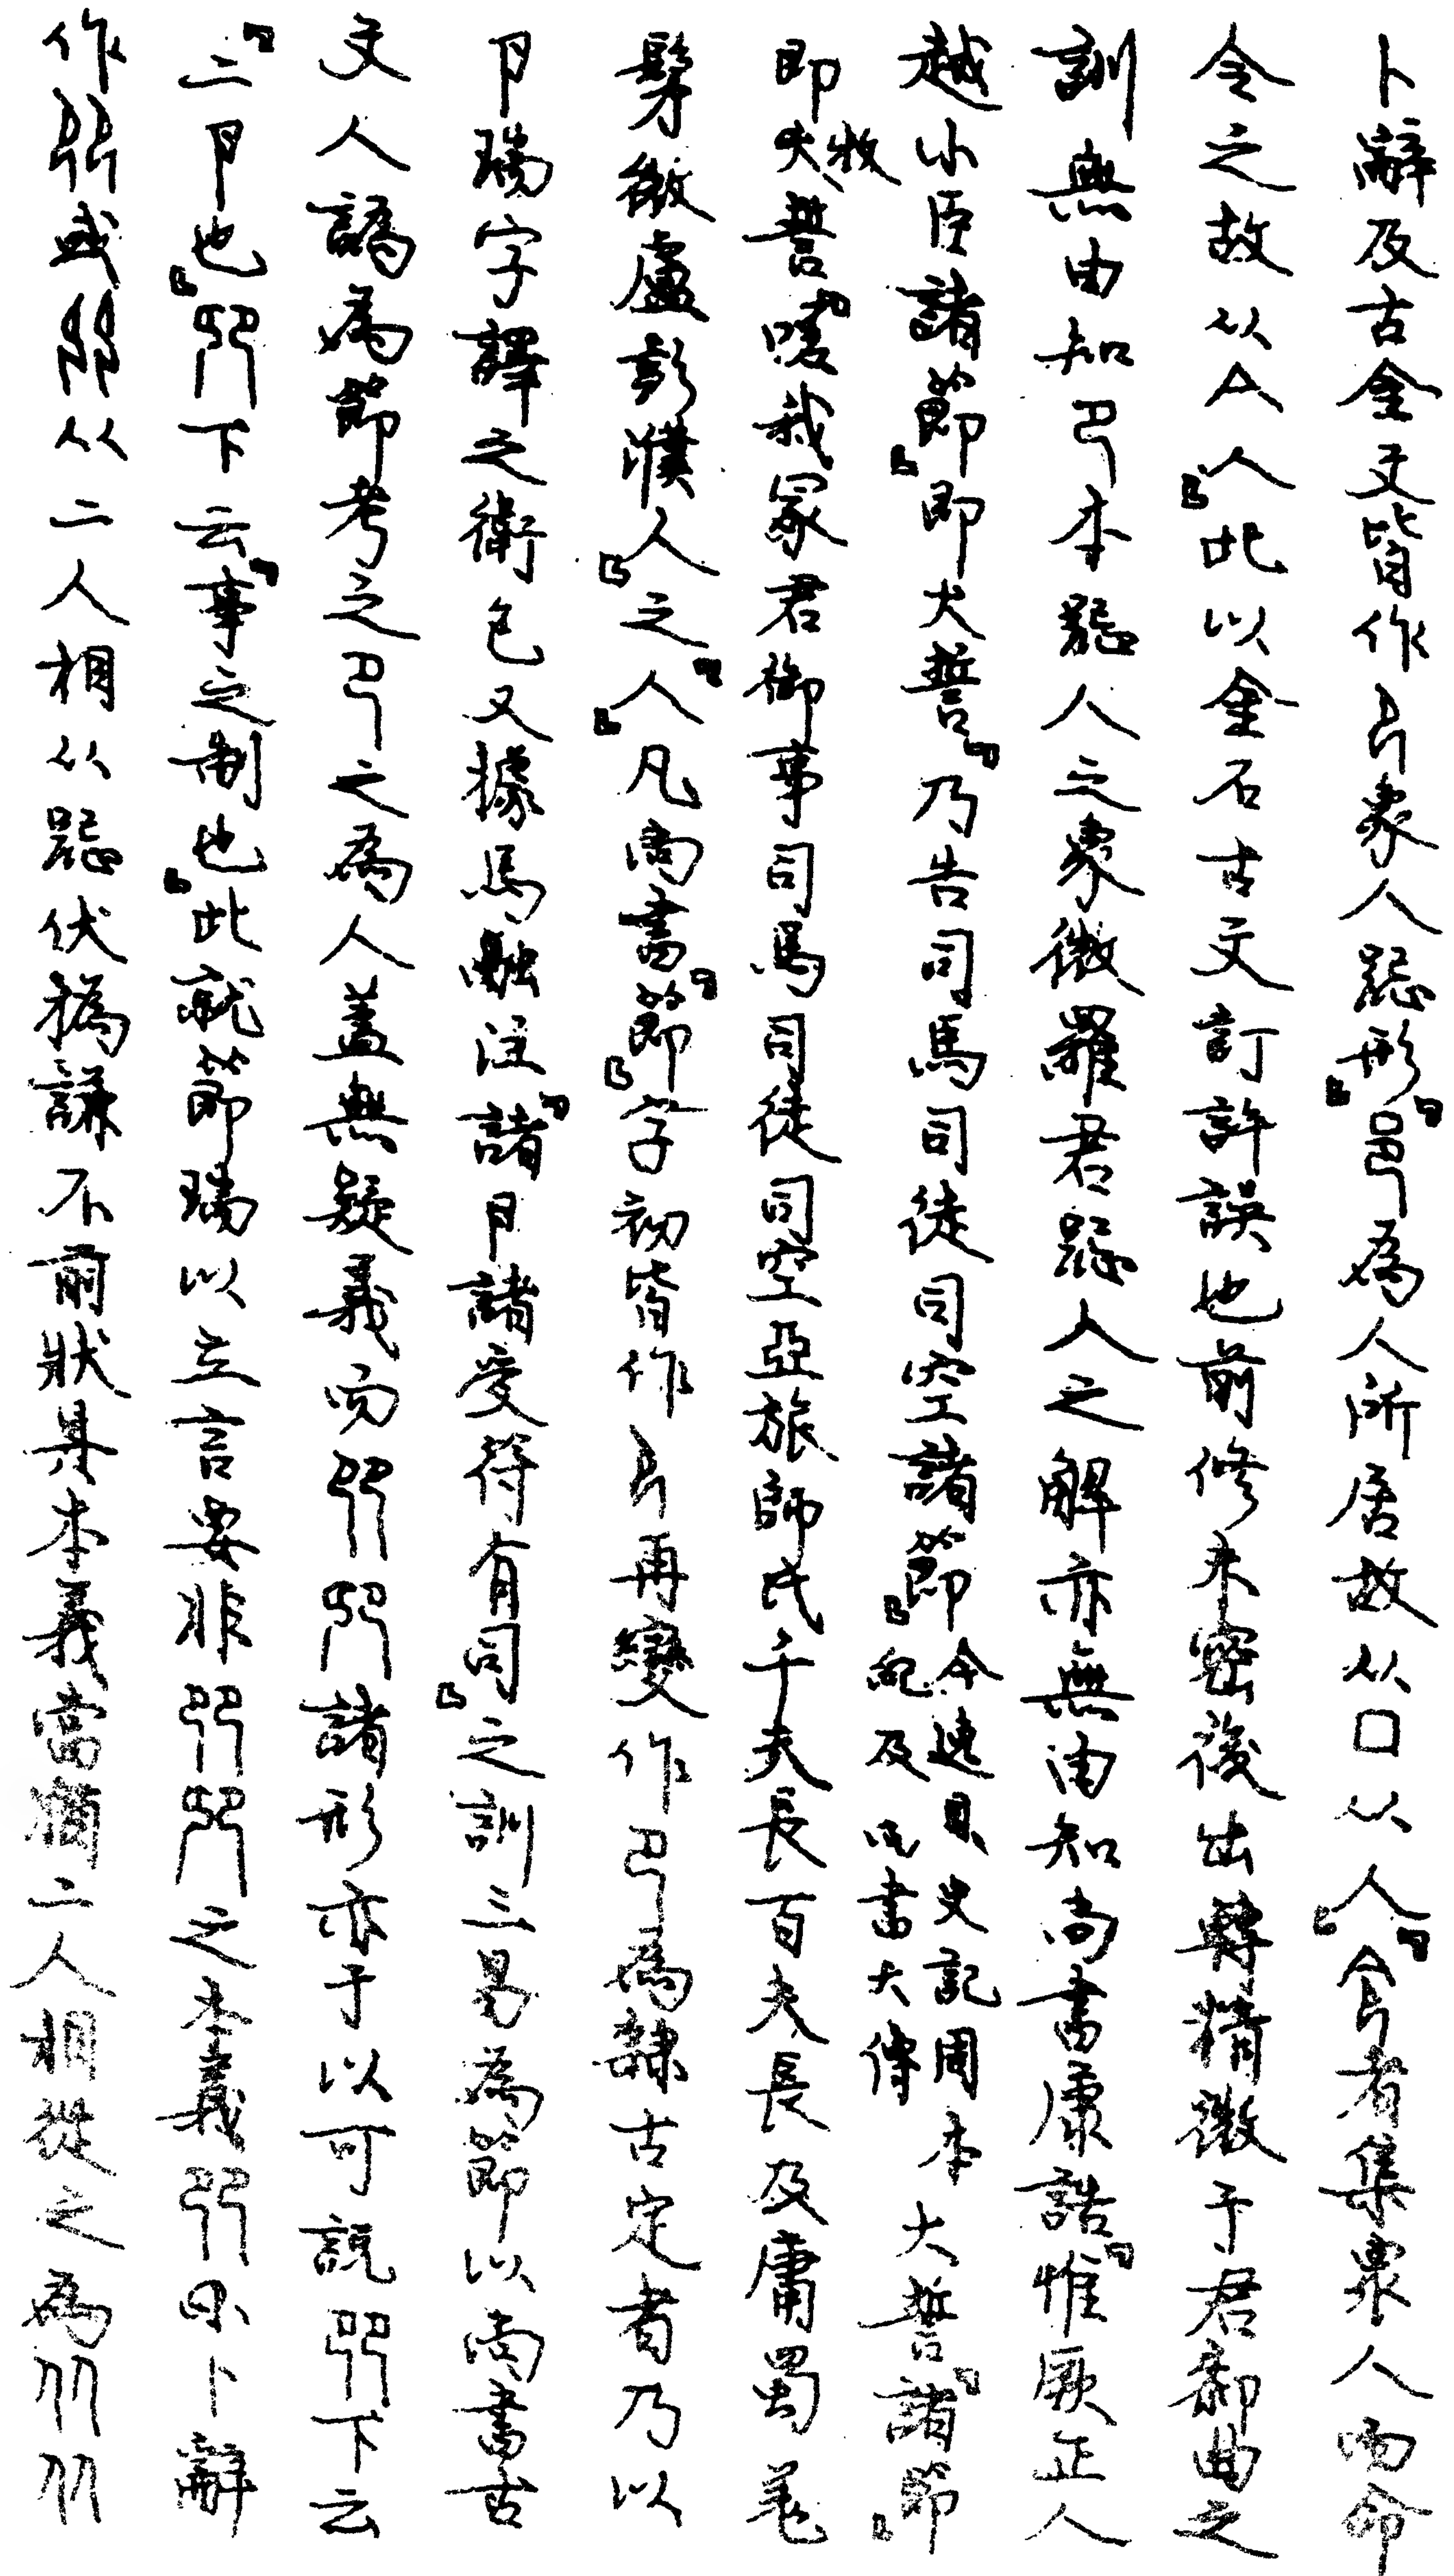 卜辭及古金文皆作𠂎象人跽形」「邑為人所居故从口从人」「令者集眾人而命
令之故从亼人」此以金石古文訂許誤也前修未密後出轉精徵于君鄉曲之
訓無由知㔾本跽人之象微羅君跽人之解亦無由知尚書康誥「惟厥正人
越小臣諸節」即大誓「乃告司馬司徒司空諸節」今逸見史記周本紀及尚書大傳大誓「諸節」
即牧誓「嗟我冢君御事司馬司徒司空亞旅師氏千夫長百夫長及庸蜀羌
髳微盧彭濮人」之「人」凡尚書「節」字初皆作𠂎再變作㔾為隸古定者乃以
卪瑞字譯之衛包又據馬融注「諸卪諸受符有司」之訓三易為節以尚書古
文人譌為節考之㔾之為人蓋無疑義而㔾㔾卯諸形亦于以可說㔾㔾下云
「二卪也」卯下云「事之制也」此就節瑞以立言要非㔾㔾卯之本義㔾㔾卜辭
作𠨎或𠨎从二人相从跽伏撝謙不前狀其本義當猶二人相從之為从从